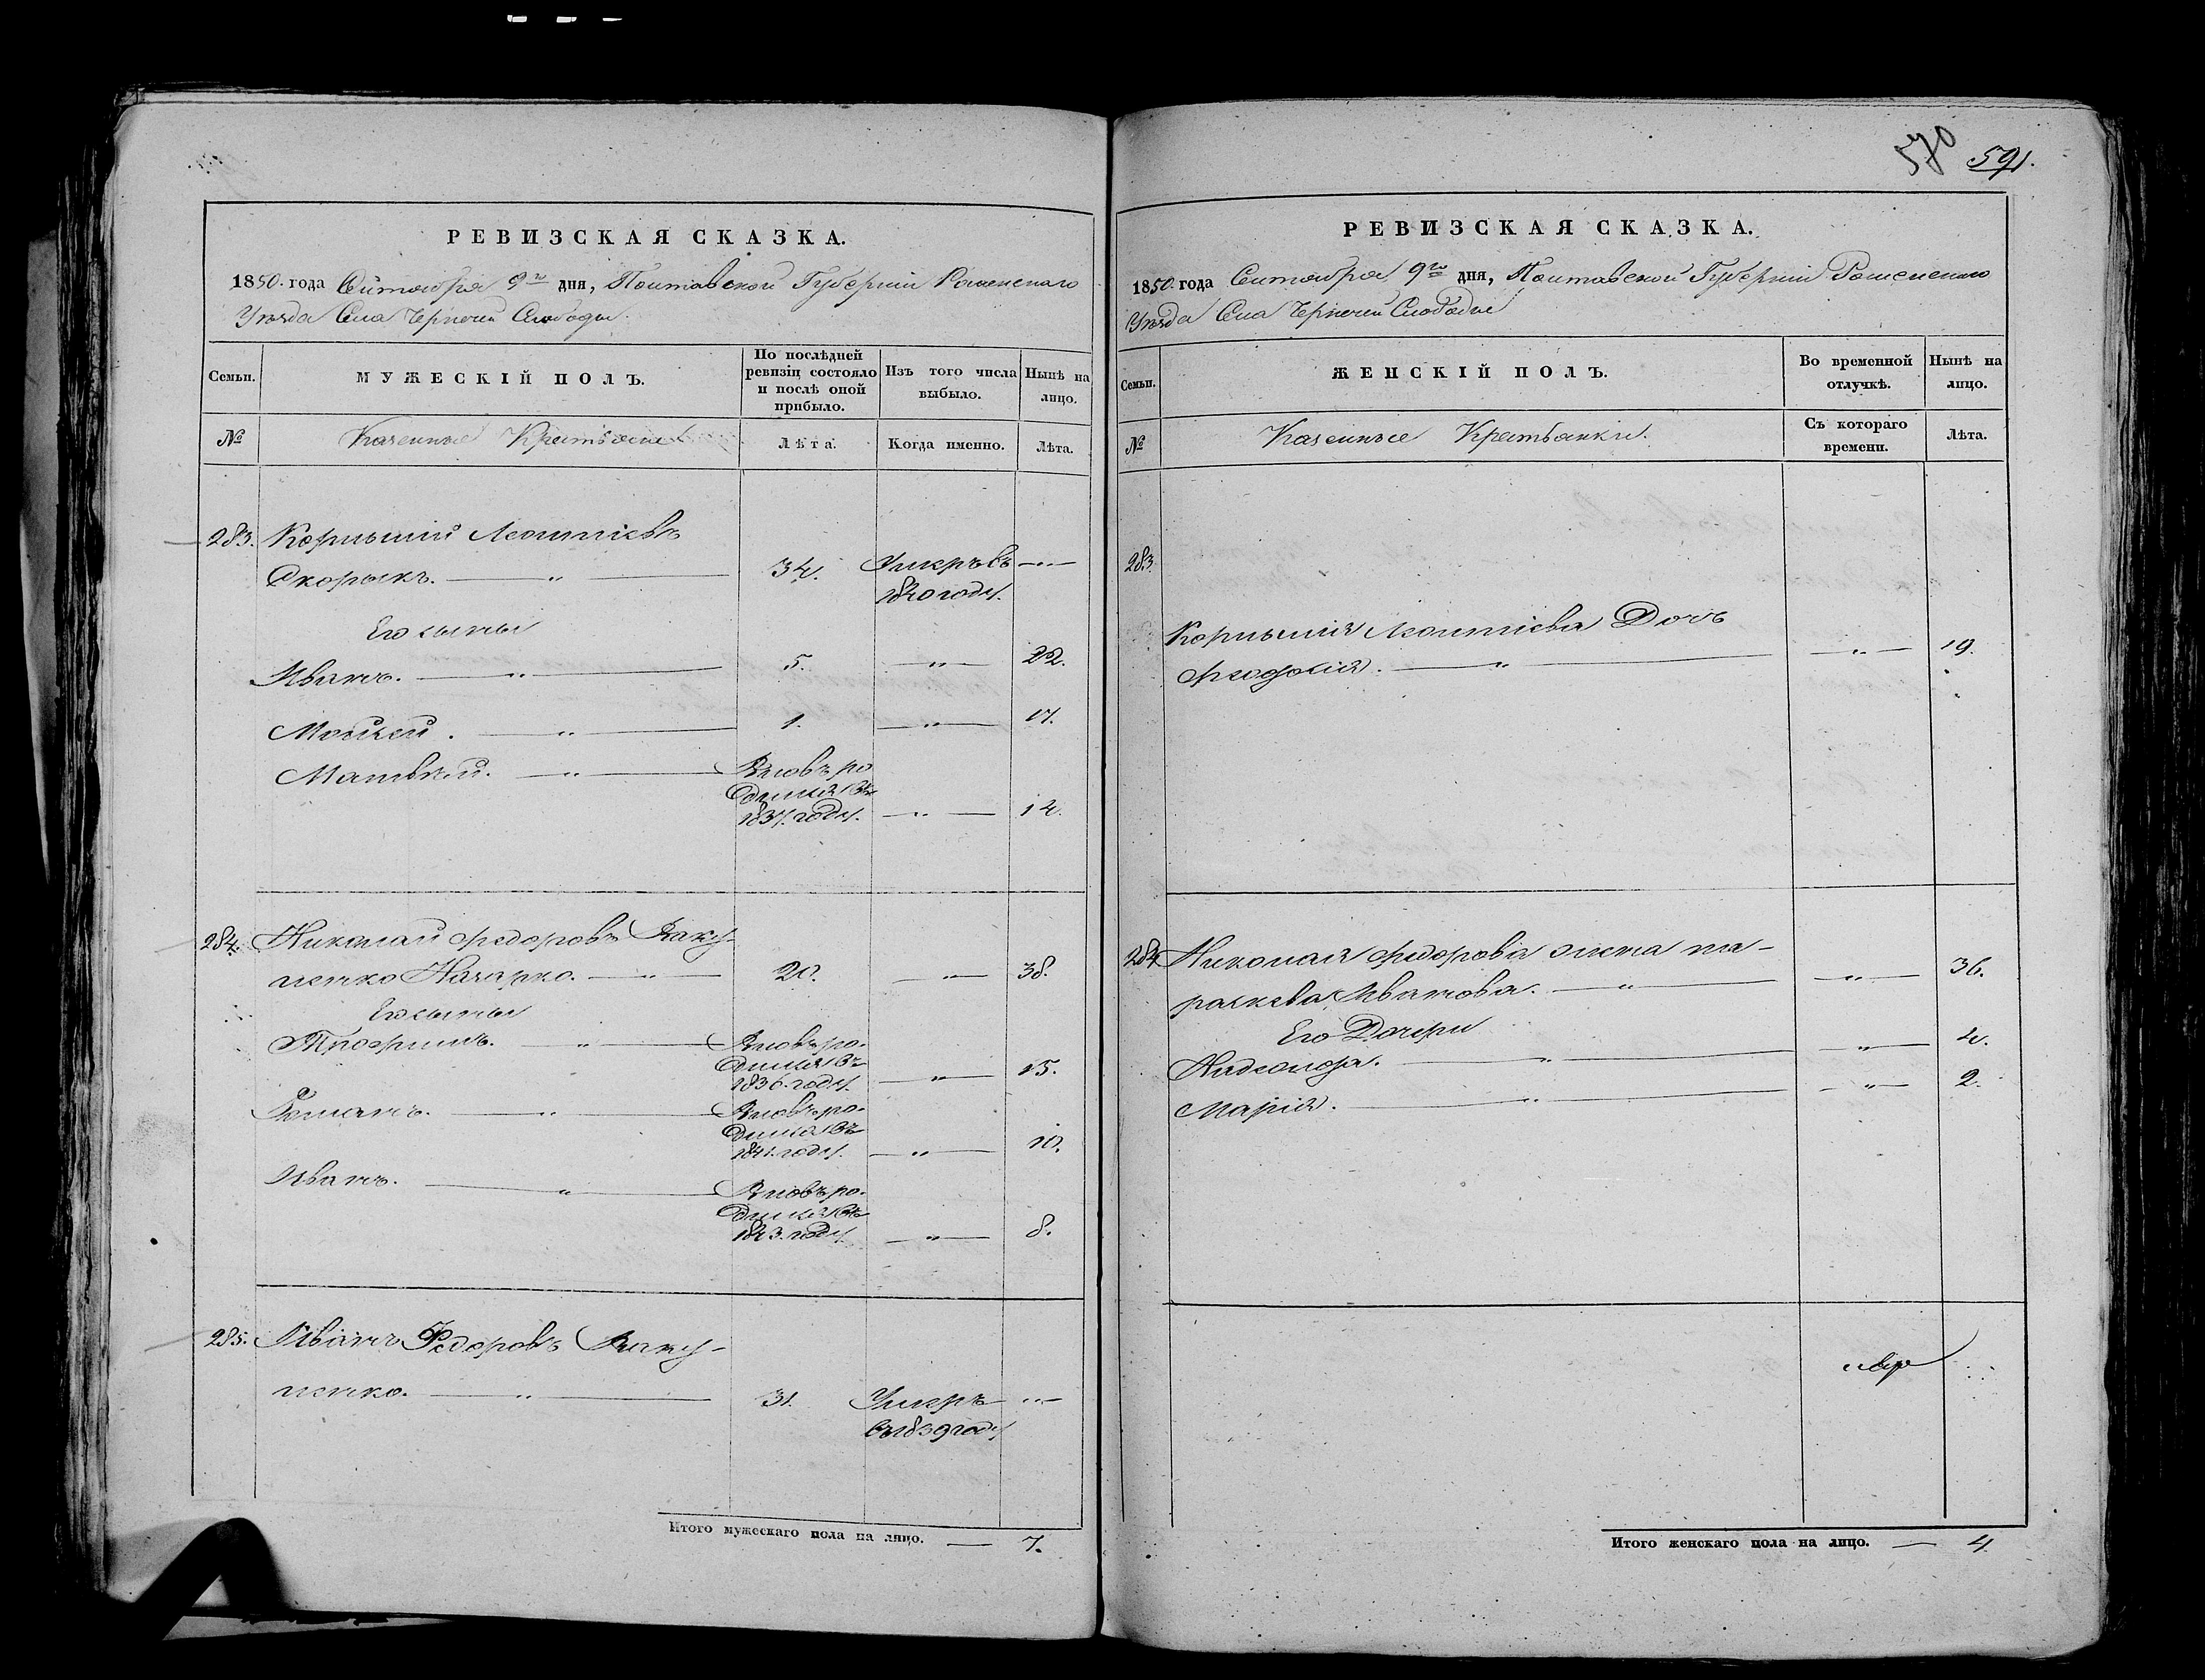 РЕВИЗСКАЯ СКАЗКА.
1850. года Сентября 9го дня, Полтавской Губернiи Роменскаго
Уѣзда Села Чернечей Слободы.
Семьи.
МУЖЕСКIЙ ПОЛЪ.
По послѣдней
ревизiи состояло
и послѣ оной
прибыло.
Изъ того числа
выбыло.
Нынѣ на
лицо.
№
Казенные Крестьяне
Лѣта.
Когда именно.
Лѣта.
283. Корнилiй Леонтiевъ
Скорыкъ. 34. Умеръ въ
1840 году.
Его сыны
Иванъ. 5. 22.
Мойсей. 1. 17.
Матвѣй. Вновь ро
дился въ
1837. году. 14.
284. Николай Федоровъ Баку-
ненко Назарко. 20. 38.
Его сыны
Трофимъ. Вновь ро-
дился въ
1836. году. 15.
Романъ. Вновь ро-
дился въ
1841. году. 10.
Иванъ. Вновь ро-
дился въ
1843. году. 8.
285. Иванъ Федоровъ Баку-
ненко. 31. Умеръ
въ 1839 году
Итого мужескаго пола на лицо. 7.
570 591.
РЕВИЗСКАЯ СКАЗКА.
1850. года Сентября 9го дня, Полтавской Губернiи Роменскаго
Уѣзда Села Чернечей Слободы
Семьи.
ЖЕНСКIЙ ПОЛЪ.
Во временной
отлучкѣ.
Нынѣ на
лицо.
№
Казенные Крестьянки.
Съ котораго
времени.
Лѣта.
283.
Корнилiя Леонтiева Дочь
Феодосiя. 19.
284. Николая Федорова жена па-
раскева Иванова. 36.
Его Дочери
4.
Марiя. 2.
Итого женскаго пола на лицо. 4